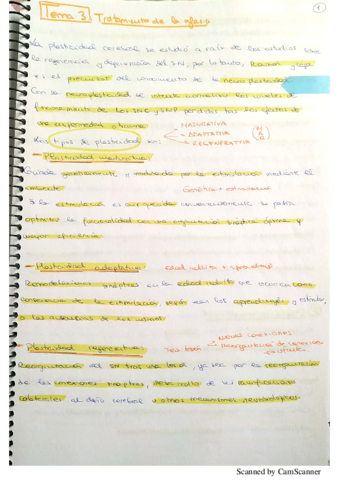 1
Tema 3. Tratamiento de la afasia
La plasticidad cerebral se estudió a raíz de los estudios sobre
la regeneración y degeneración del SN, por lo tanto, Ramón y Cajal
es el precursor del conocimiento de la neuroplasticidad.
Con la neuroplasticidad se intenta normalizar los niveles de
funcionamiento de los SNC y SNP perdidos tras los efectos de
una enfermedad o trauma
Los tipos de plasticidad son:
MADURATIVA
ADAPTATIVA
REGENERATIVA
- Plasticidad madurativa
Guiada genéticamente y modulada por la estimulación mediante el
ambiente
Genética + estimulación
Si la estimulación es
optimizar la funcionalidad con una organización
mayor eficiencia.
- Plasticidad adaptativa
Edad adulta + aprendizaje
Remodelaciones sinápticas en la edad adulta que ocurren como
consecuencia de la estimulación
- Plasticidad regenerativa
Tras lesión
Nuevas conexiones
Reorganización de
existentes
Reorganización del SN tras una lesión, ya sea por la reorganización
de las conexiones sinápticas, desarrollo de las ramificaciones
colaterales al daño cerebral u otros mecanismos
Scanned by CamScanner